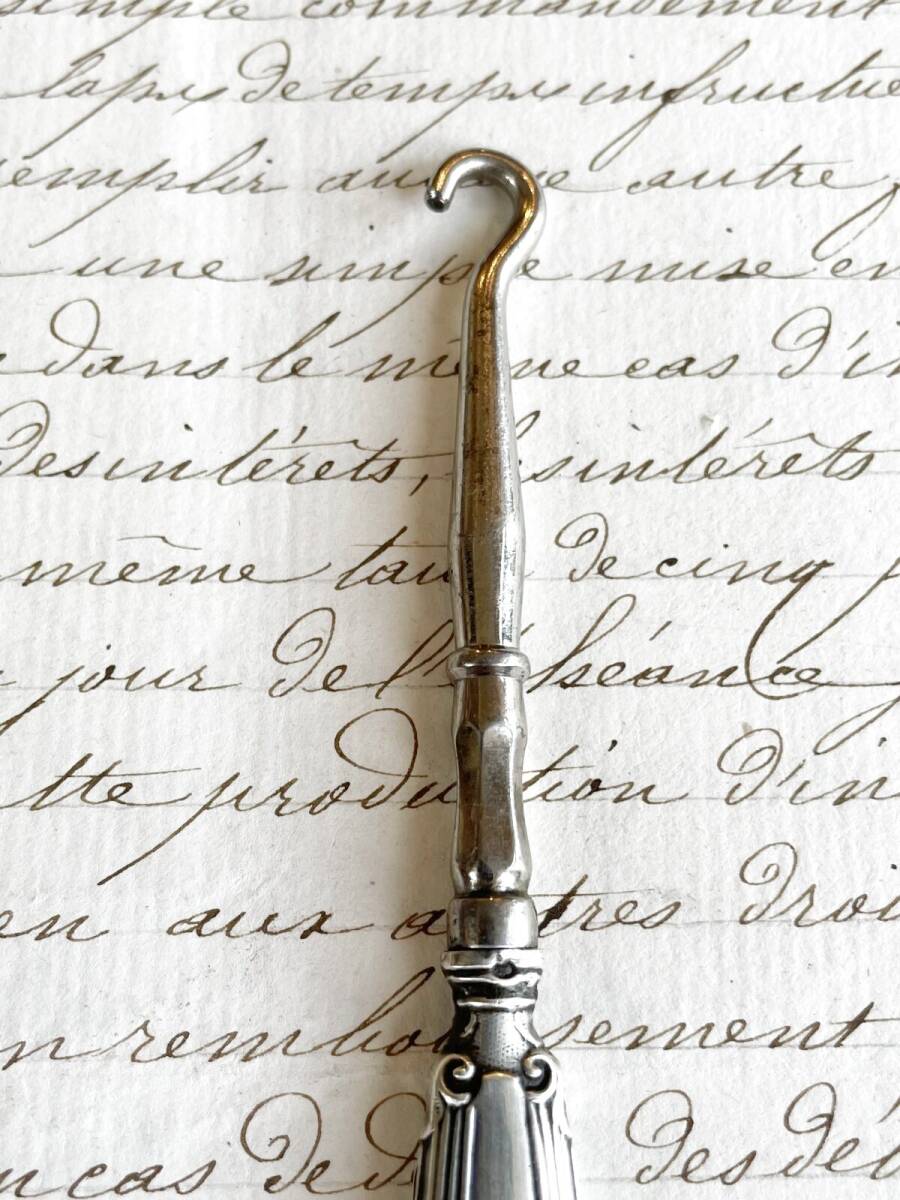 simple commandement
laps de temps infructue
emplir aucune autre
une simple mise en
dans le même cas d'in
des intérêts, les intérêts
même taux de cinq
jour de l'échéance
tte production d'in
en aux autres droi
n remboursement
n cas de des dé